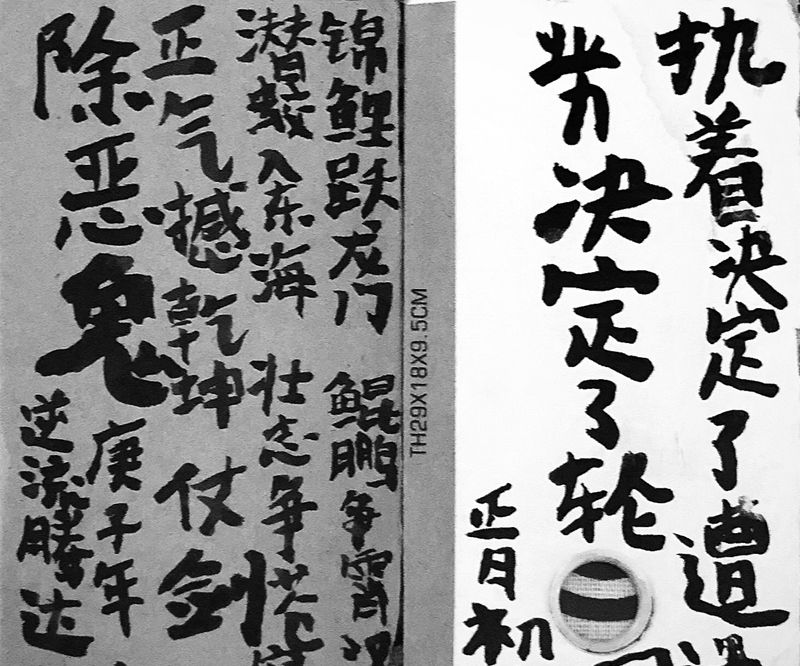 执着决定了遭
业力决定了轮
正月初
TH29X18X9.5CM
锦鲤跃龙门 鲲鹏争霄
潜蛟入东海 壮志争
正气撼乾坤 仗剑
除恶鬼
庚子年
逆流腾达